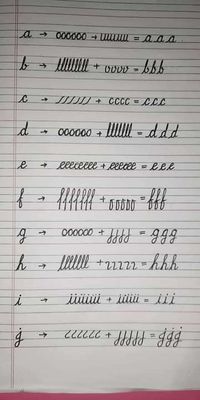 a → oooooo + ıııııııı = a a a
b → lllllllll + vvvv = bbb
c → ////// + cccc = ccc
d → oooooo + llllllll = d d d
e → eeeeeeee + eeeeee = e e e
f → fffffff + ooooo = fff
g → oooooo + jjjj = ggg
h → llllllll + ııııı = hhh
i → iiiiiiii + iiiiii = i i i
j → ıııııı + jjjjj = jjj